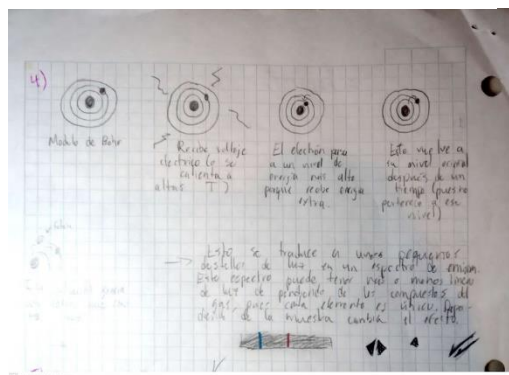 4)
Modulo de Bohr
Recibe voltaje
electrico (o se
calienta a
altas T)
El electrón pasa
a un nivel de
energia mas alto
porque recibe energia
extra.
Este vuelve a
su nivel
despues de un
tiempo (pues no
pertenece a ese
nivel)
→ Esto se traduce a unos pequeños
destellos de luz en un espectro de emision.
Este espectro puede tener mas o menos lineas
de luz de pendiendo de los compuestos del
gas, pues cada elemento es único. Depen-
diendo de la muestra cambia el efecto.